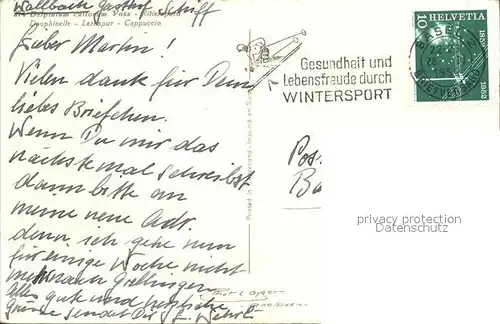 Wallbach Gasthof Schiff
Delphinum
Dauphinelle - Larkspur - Cappuccio
Lieber Martin!
Vielen dank für Dein
liebes Briefchen.
Wenn Du mir das
nächste mal schreibst
dann bitte an
meine neue Adr.
denn ich gehe nun
für einige Woche nicht
mehr nach Grellingen
alles gute und herzliche
Grüsse sendet Dir
Printed in Switzerland - Imprimé en Suisse
Gesundheit und
Lebensfreude durch
WINTERSPORT
HELVETIA
10
1882
1982
BASEL
BRIEFVERSAND
Pos
Ba
privacy protection
(Datenschutz)